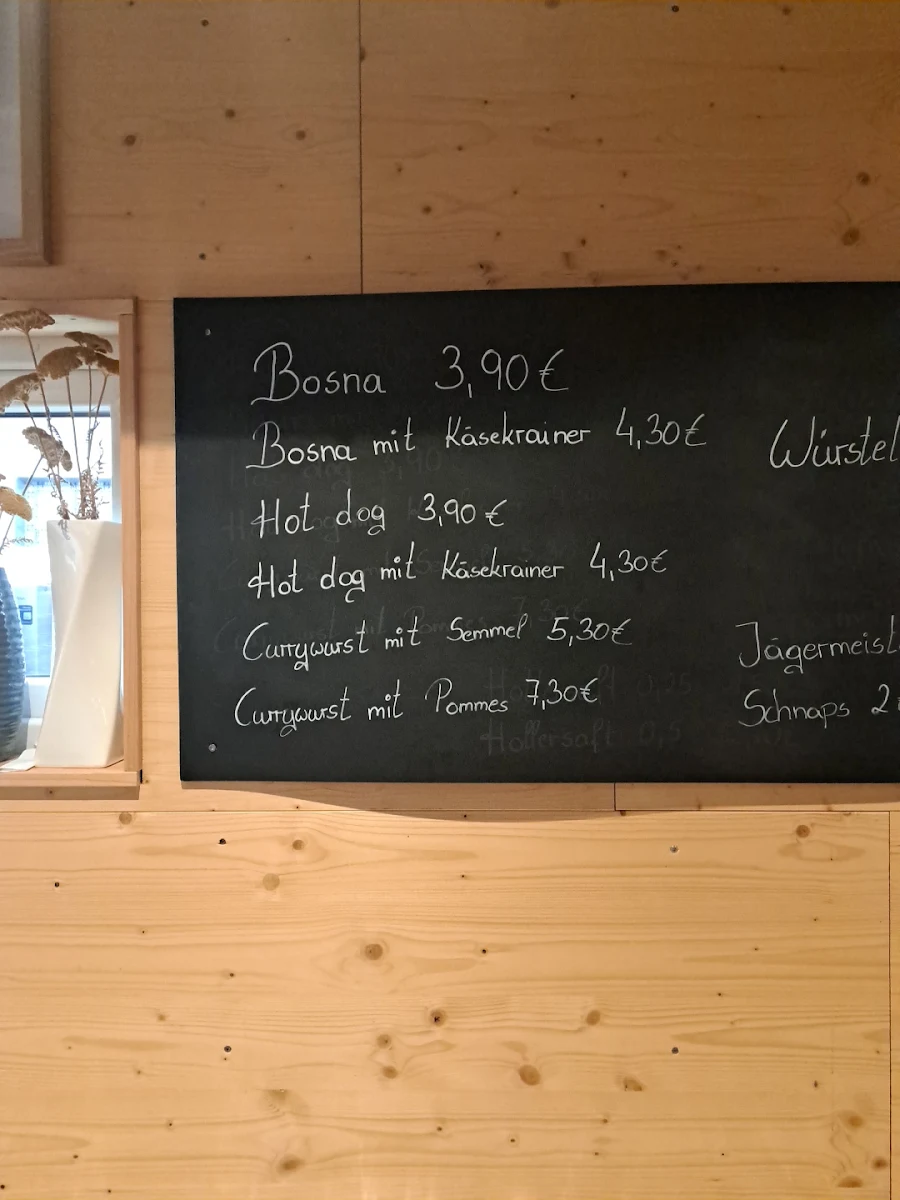 Bosna 3,90 €
Bosna mit Käsekrainer 4,30 €
Hot dog 3,90 €
Hot dog mit Käsekrainer 4,30 €
Currywurst mit Semmel 5,30 €
Currywurst mit Pommes 7,30 €
Hollersaft 0,5
Würstel
Jägermeist
Schnaps 2